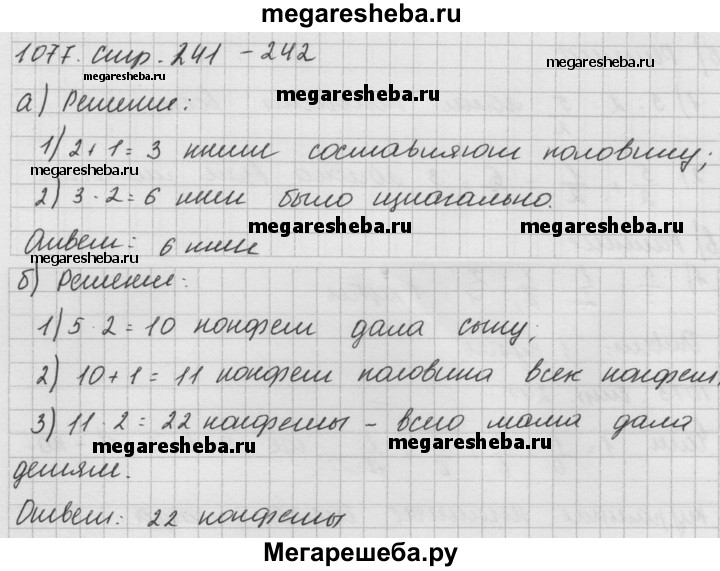 megaresheba.ru
1077. стр. 241 - 242
megaresheba.ru
megaresheba.ru
а) Решение:
1) 2 + 1 = 3 книги составляют половину;
megaresheba.ru
2) 3 · 2 = 6 книг было
megaresheba.ru
megaresheba.ru
Ответ: 6 книг
б) Решение:
1) 5 · 2 = 10 конфет дала сыну;
2) 10 + 1 = 11 конфет половина всех конфет;
3) 11 · 2 = 22 конфеты - всего мама дала
megaresheba.ru
megaresheba.ru
детям.
Ответ: 22 конфеты
Мегарешеба.ру